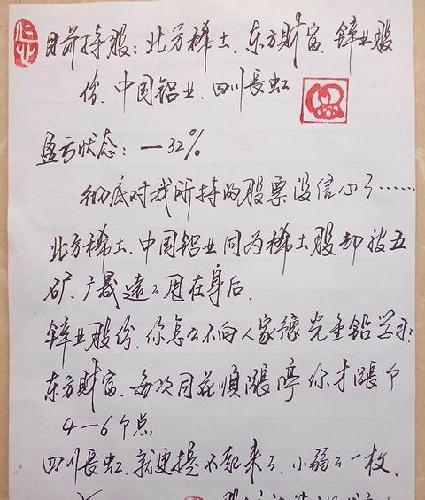 目前持股：北方稀土、东方财富、锌业股
份、中国铝业、四川長虹
盈亏状态：—32%
彻底对我所持的股票没信心了……
北方稀土、中国铝业同为稀土股却被五
矿、广晟远远甩在身后.
锌业股份，你怎么不向人家豫光金铅学习；
东方财富，每次同花顺漲停你才漲个
4--6个点
四川長虹，就更提不起来了，小弱弱一枚.